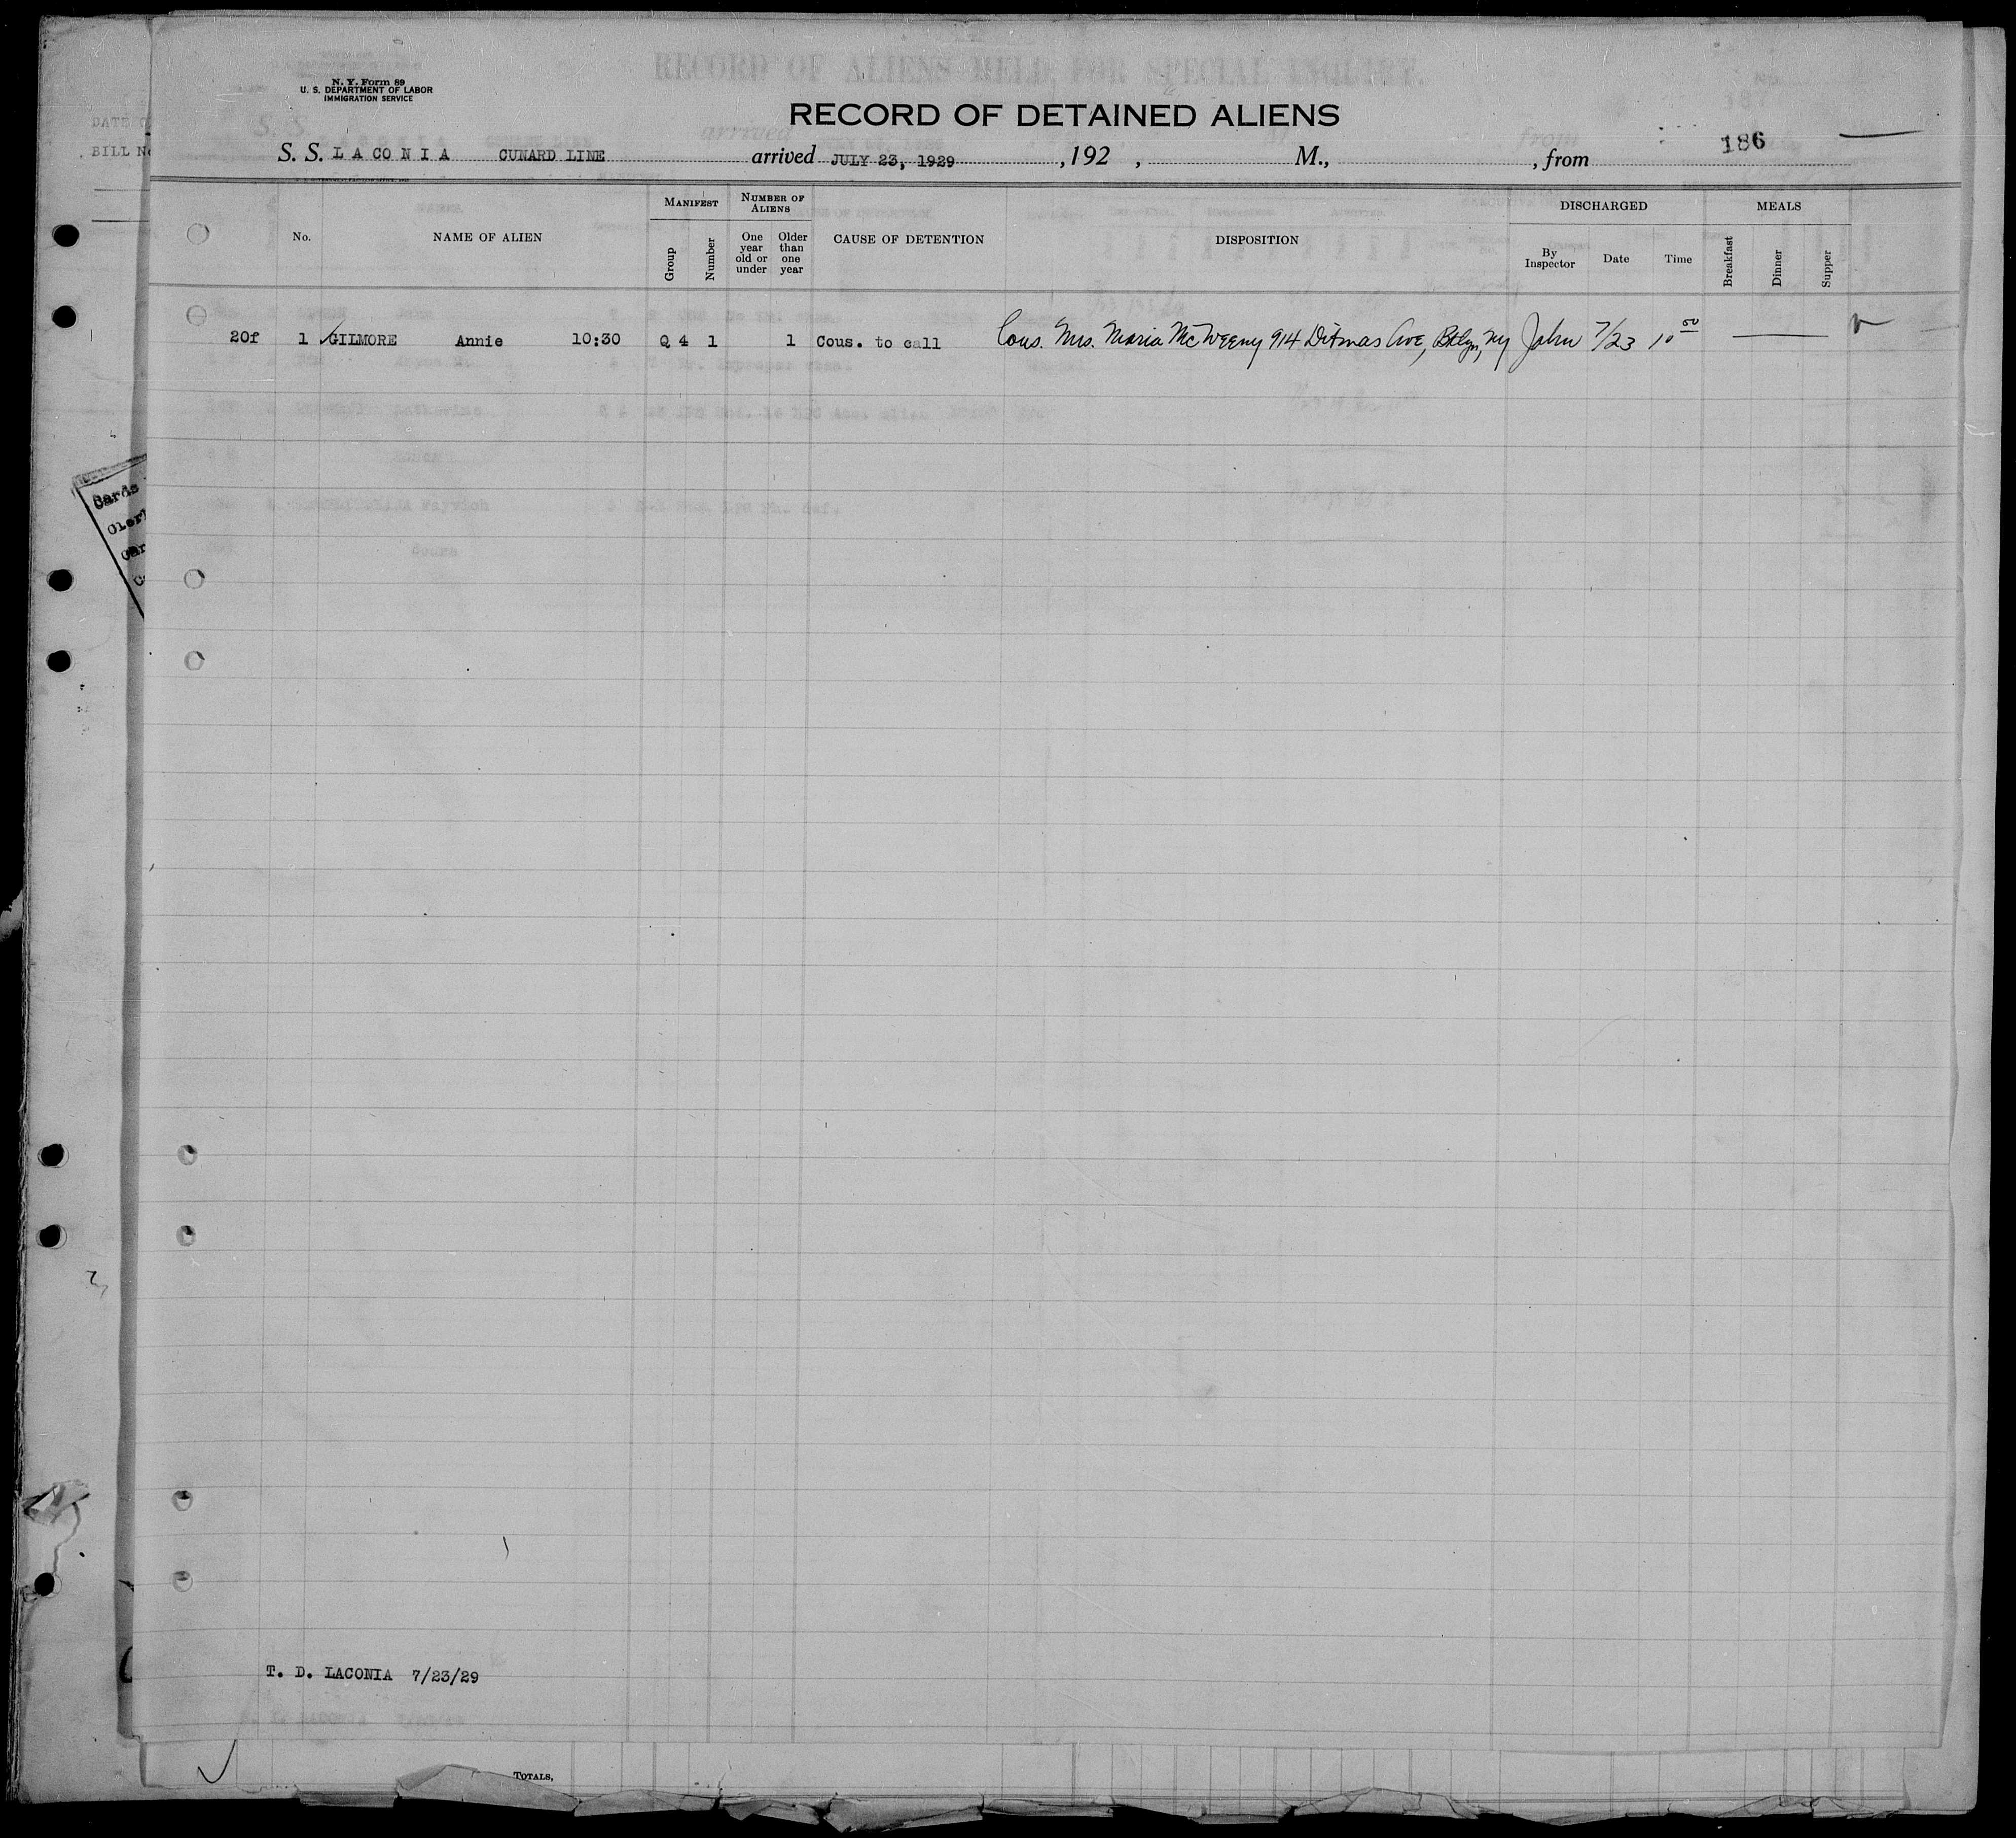 N. Y. Form 89
U. S. DEPARTMENT OF LABOR
IMMIGRATION SERVICE
RECORD OF DETAINED ALIENS
186
S. S. LACONIA CUNARD LINE arrived JULY 23, 1929 , 192 , M., , from
No. NAME OF ALIEN MANIFEST Group Number NUMBER OF ALIENS One year old or under Older than one year CAUSE OF DETENTION DISPOSITION DISCHARGED By Inspector Date Time MEALS Breakfast Dinner Supper
20f 1 GILMORE Annie 10:30 Q 4 1 1 Cous. to call Cous. Mrs. Maria McWeeny 914 Ditmas Ave, Bklyn, NY John 7/23 10 50
T. D. LACONIA 7/23/29
TOTALS,
DATE
BILL No
Cards
Cler
Car
RECORD OF ALIENS HELD FOR SPECIAL INQUIRY.